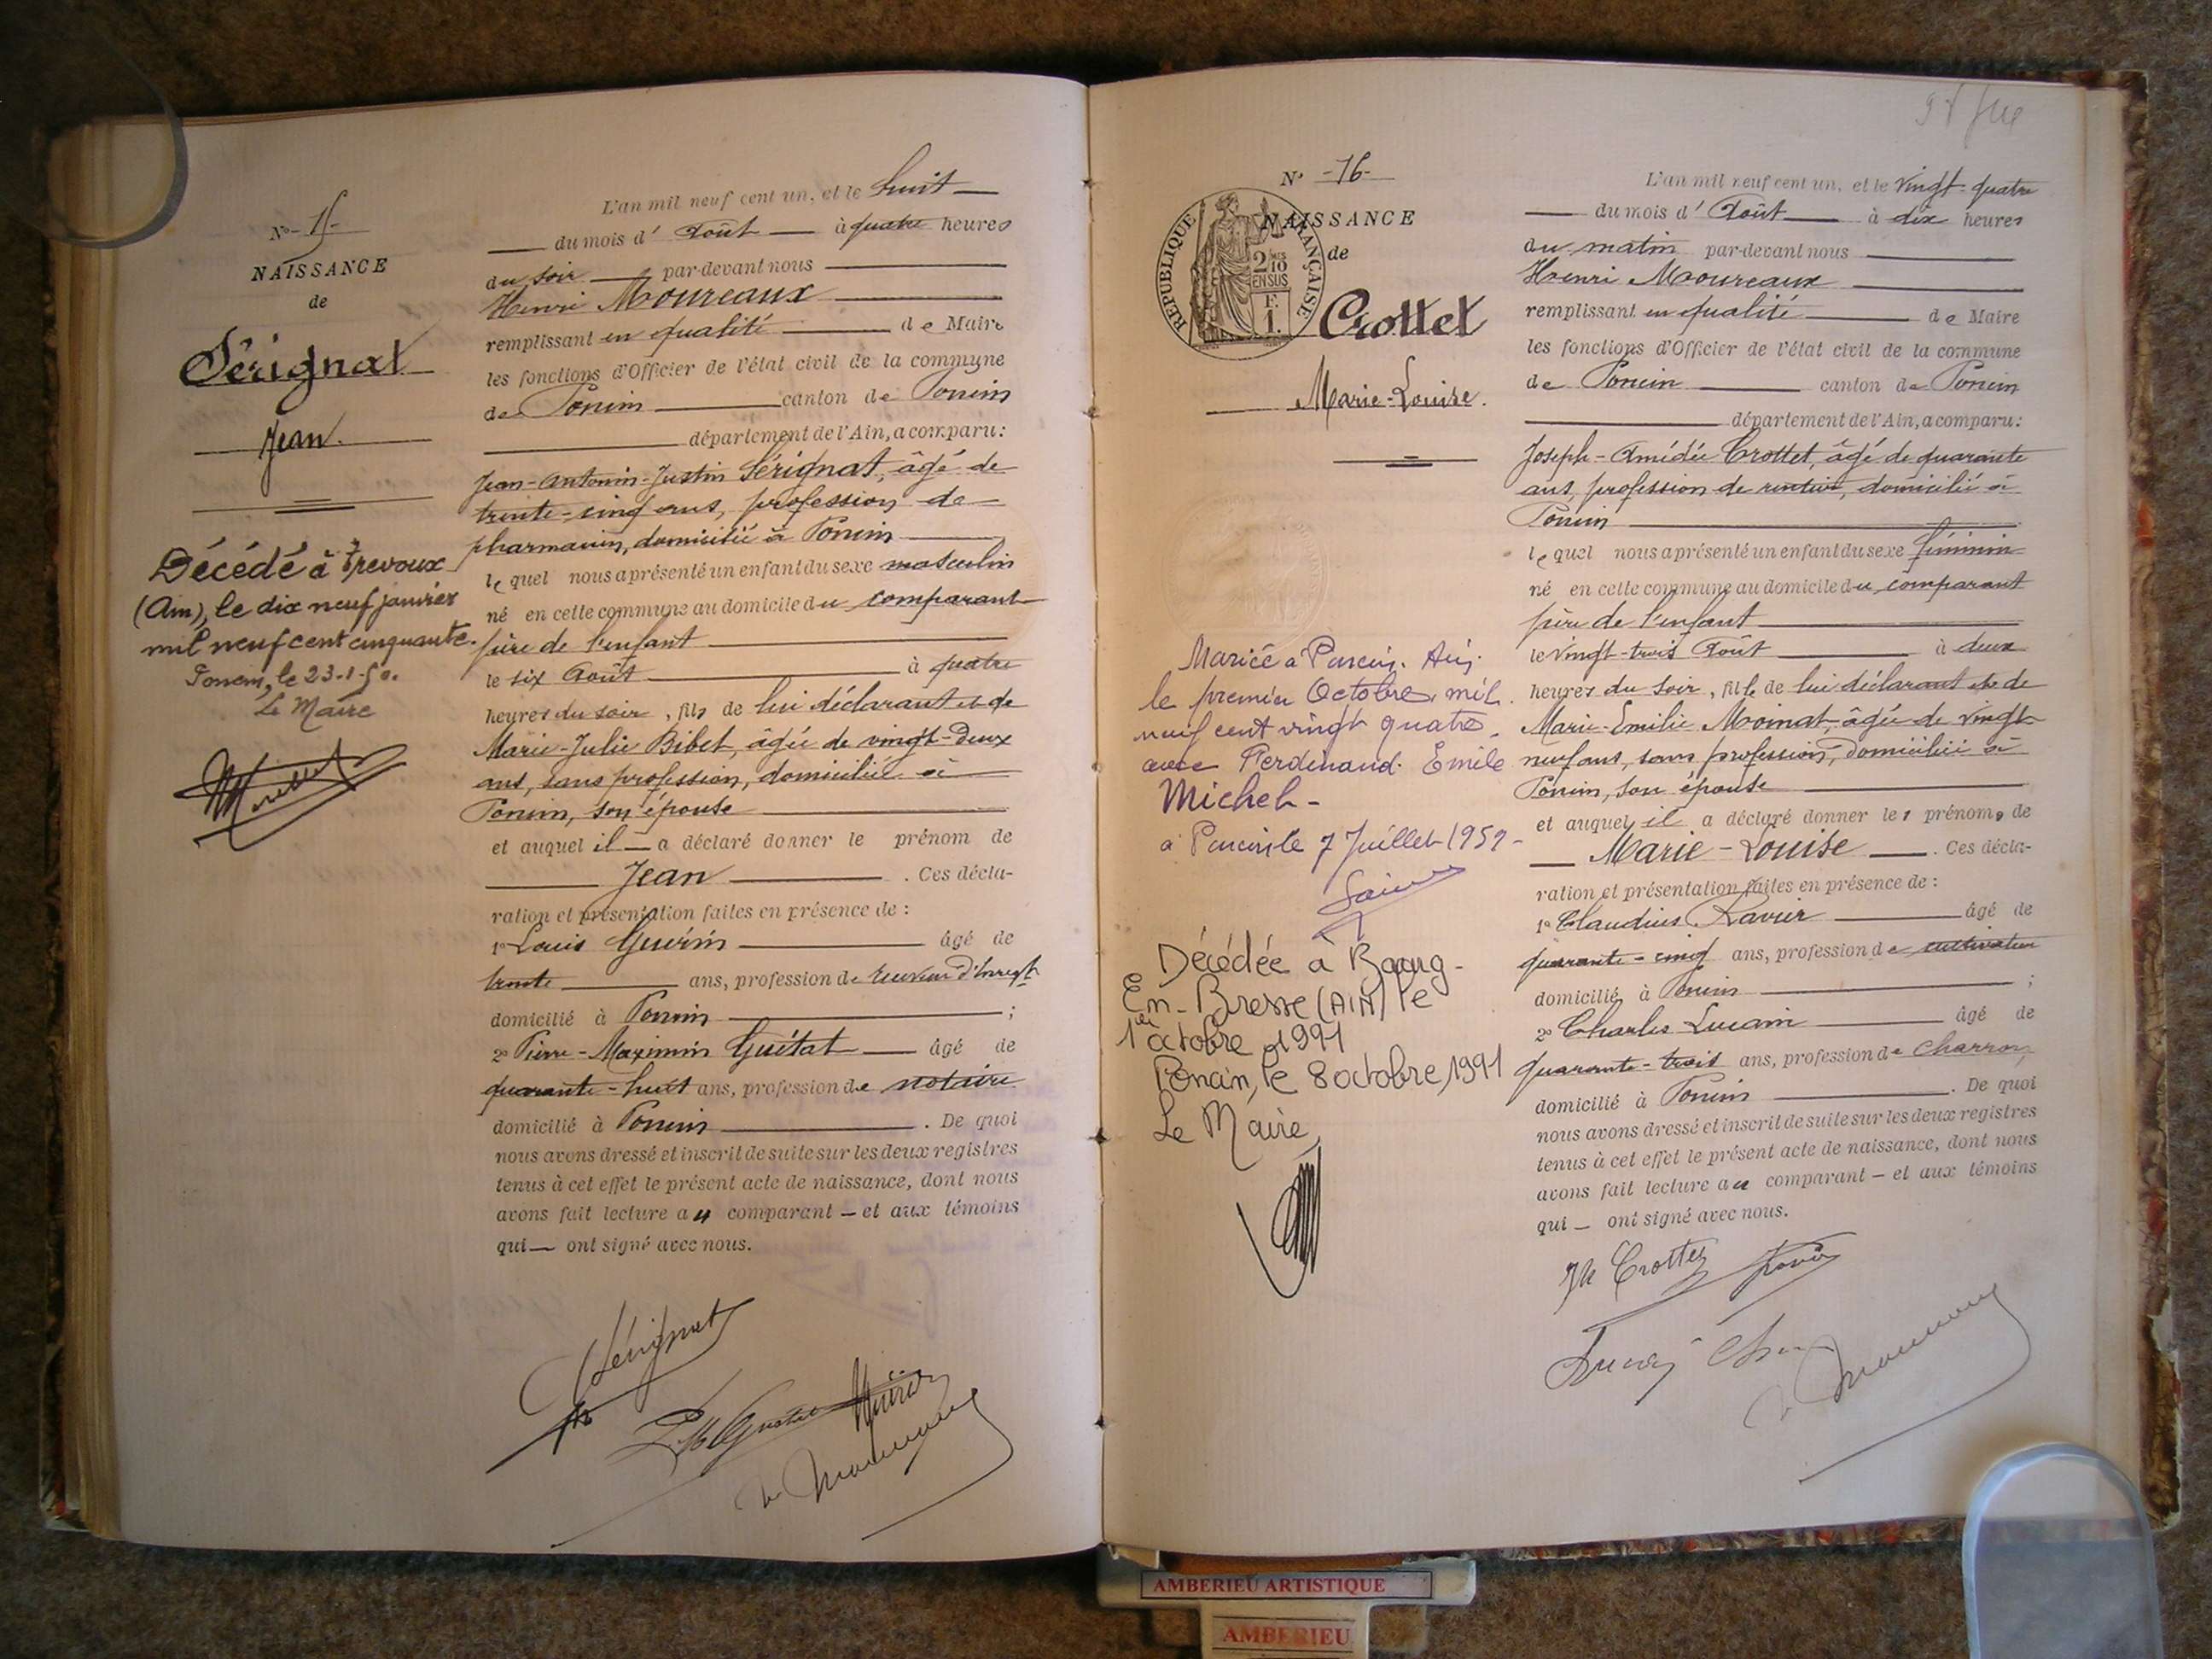 N° -15-
NAISSANCE
de
Sérignat
Jean.
Décédé à Trevoux
(Ain), le dix neuf janvier
mil neuf cent cinquante.
Poncin, le 23-1-50.
Le Maire
L'an mil neuf cent un, et le huit
du mois d' Août à quatre heures
du soir par-devant nous
Henri Moureaux
remplissant en qualité de Maire
les fonctions d'Officier de l'état civil de la commune
de Poncin canton de Poncin
département de l'Ain, a comparu:
Jean-Antonin-Justin Sérignat, âgé de
trente-cinq ans, profession de
pharmacien, domicilié à Poncin
lequel nous a présenté un enfant du sexe masculin
né en cette commune au domicile du comparant
père de l'enfant
le six Août à quatre
heures du soir, fils de lui déclarant et de
Marie-Julie Bibet, âgée de vingt-deux
ans, sans profession, domiciliée à
Poncin, son épouse
et auquel il a déclaré donner le prénom de
Jean . Ces décla-
ration et présentation faites en présence de :
1° Louis Guérin âgé de
trente ans, profession de receveur d'Enregt
domicilié à Poncin ;
2° Pierre-Maximin Guétat âgé de
quarante-huit ans, profession de notaire
domicilié à Poncin . De quoi
nous avons dressé et inscrit de suite sur les deux registres
tenus à cet effet le présent acte de naissance, dont nous
avons fait lecture au comparant — et aux témoins
qui — ont signé avec nous.
Sérignat
N° -76-
NAISSANCE
de
RÉPUBLIQUE FRANÇAISE
2/10
EN SUS
F.
1.
Crottet
Marie-Louise.
Mariée à Poncin. Ain.
le premier Octobre mil
neuf cent vingt quatre.
avec Ferdinand. Emile
Michel -
à Poncin le 7 Juillet 1959 -
Décédée à Bourg-
En-Bresse (AIN) le
1er octobre 1991
Poncin, le 8 octobre 1991
Le Maire,
L'an mil neuf cent un, et le vingt-quatre
du mois d' Août à dix heures
du matin par-devant nous
Henri Moureaux
remplissant en qualité de Maire
les fonctions d'Officier de l'état civil de la commune
de Poncin canton de Poncin
département de l'Ain, a comparu:
Joseph-Amédée Crottet, âgé de quarante
ans, profession de rentier, domicilié à
Poncin
lequel nous a présenté un enfant du sexe féminin
né en cette commune au domicile du comparant
père de l'enfant
le vingt-trois Août à deux
heures du soir, fille de lui déclarant et de
Marie-Emilie Moinat, âgée de vingt-
neuf ans, sans profession, domiciliée à
Poncin, son épouse
et auquel il a déclaré donner les prénoms de
Marie-Louise . Ces décla-
ration et présentation faites en présence de :
1° Claudius Ravier âgé de
quarante-cinq ans, profession de cultivateur
domicilié à Poncin ;
2° Charles Lucain âgé de
quarante-trois ans, profession de charron
domicilié à Poncin . De quoi
nous avons dressé et inscrit de suite sur les deux registres
tenus à cet effet le présent acte de naissance, dont nous
avons fait lecture au comparant — et aux témoins
qui — ont signé avec nous.
Crottet Ravier
AMBERIEU ARTISTIQUE
AMBERIEU